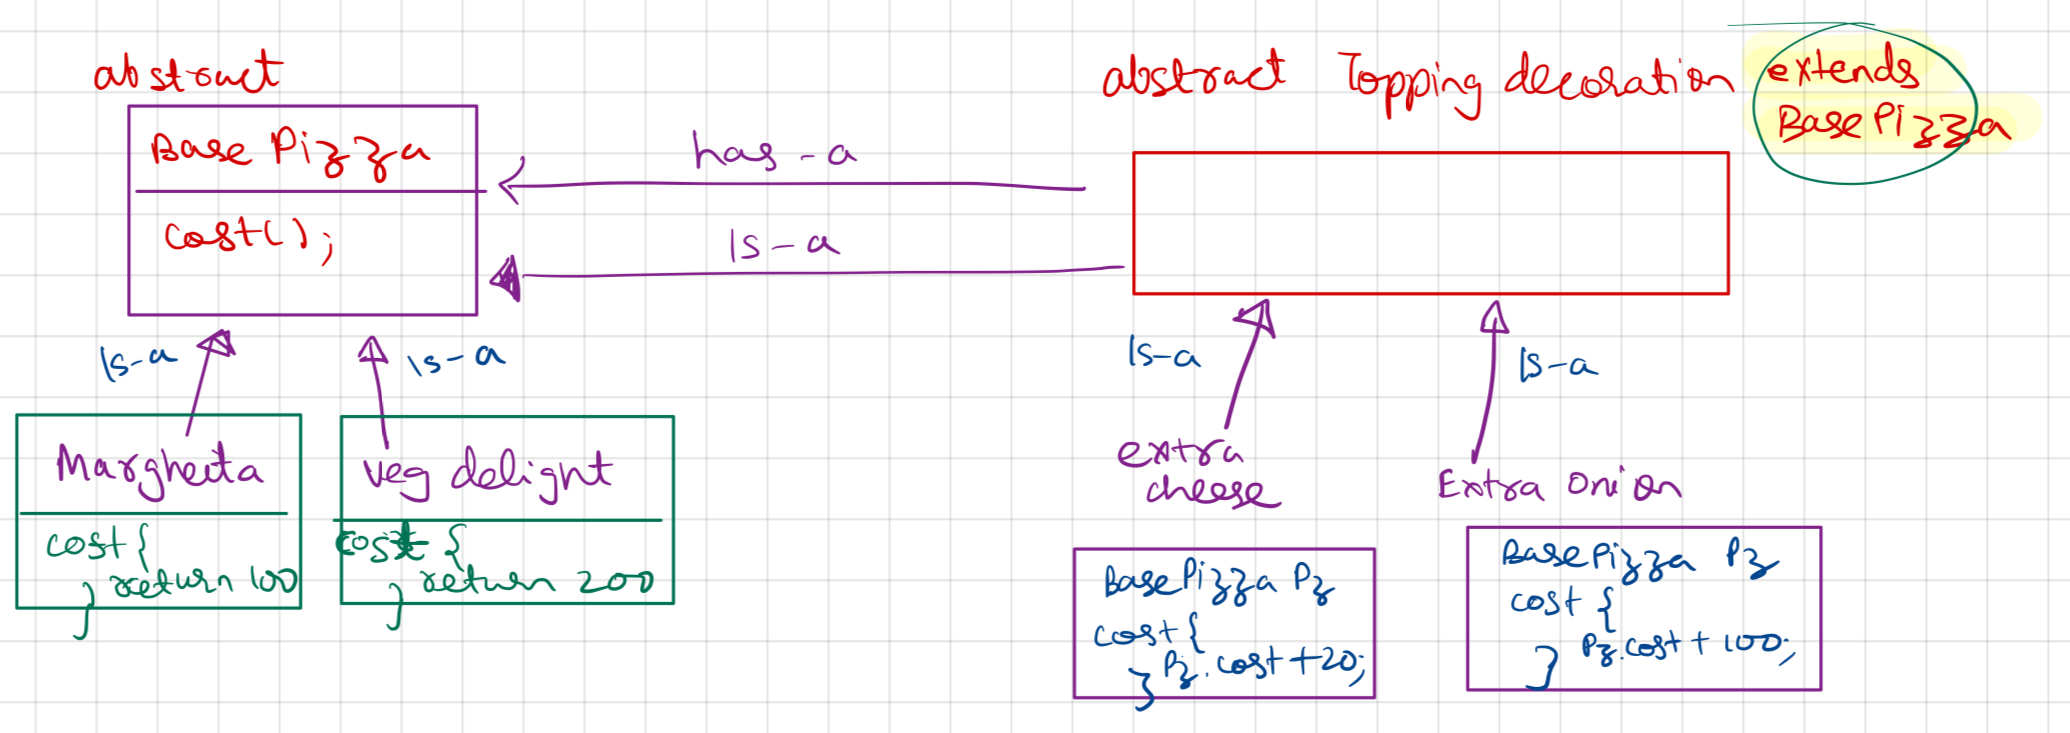 abstract
Base Pizza
cost();
has-a
Is-a
abstract Topping decoration extends
BasePizza
Is-a
Is-a
Is-a
Is-a
Margheita
cost{
return 100
}
veg delight
cost {
return 200
}
extra
cheese
BasePizza Pz
cost{
Pz.cost+20;
}
Extra onion
BasePizza Pz
cost {
Pz.cost + 100;
}